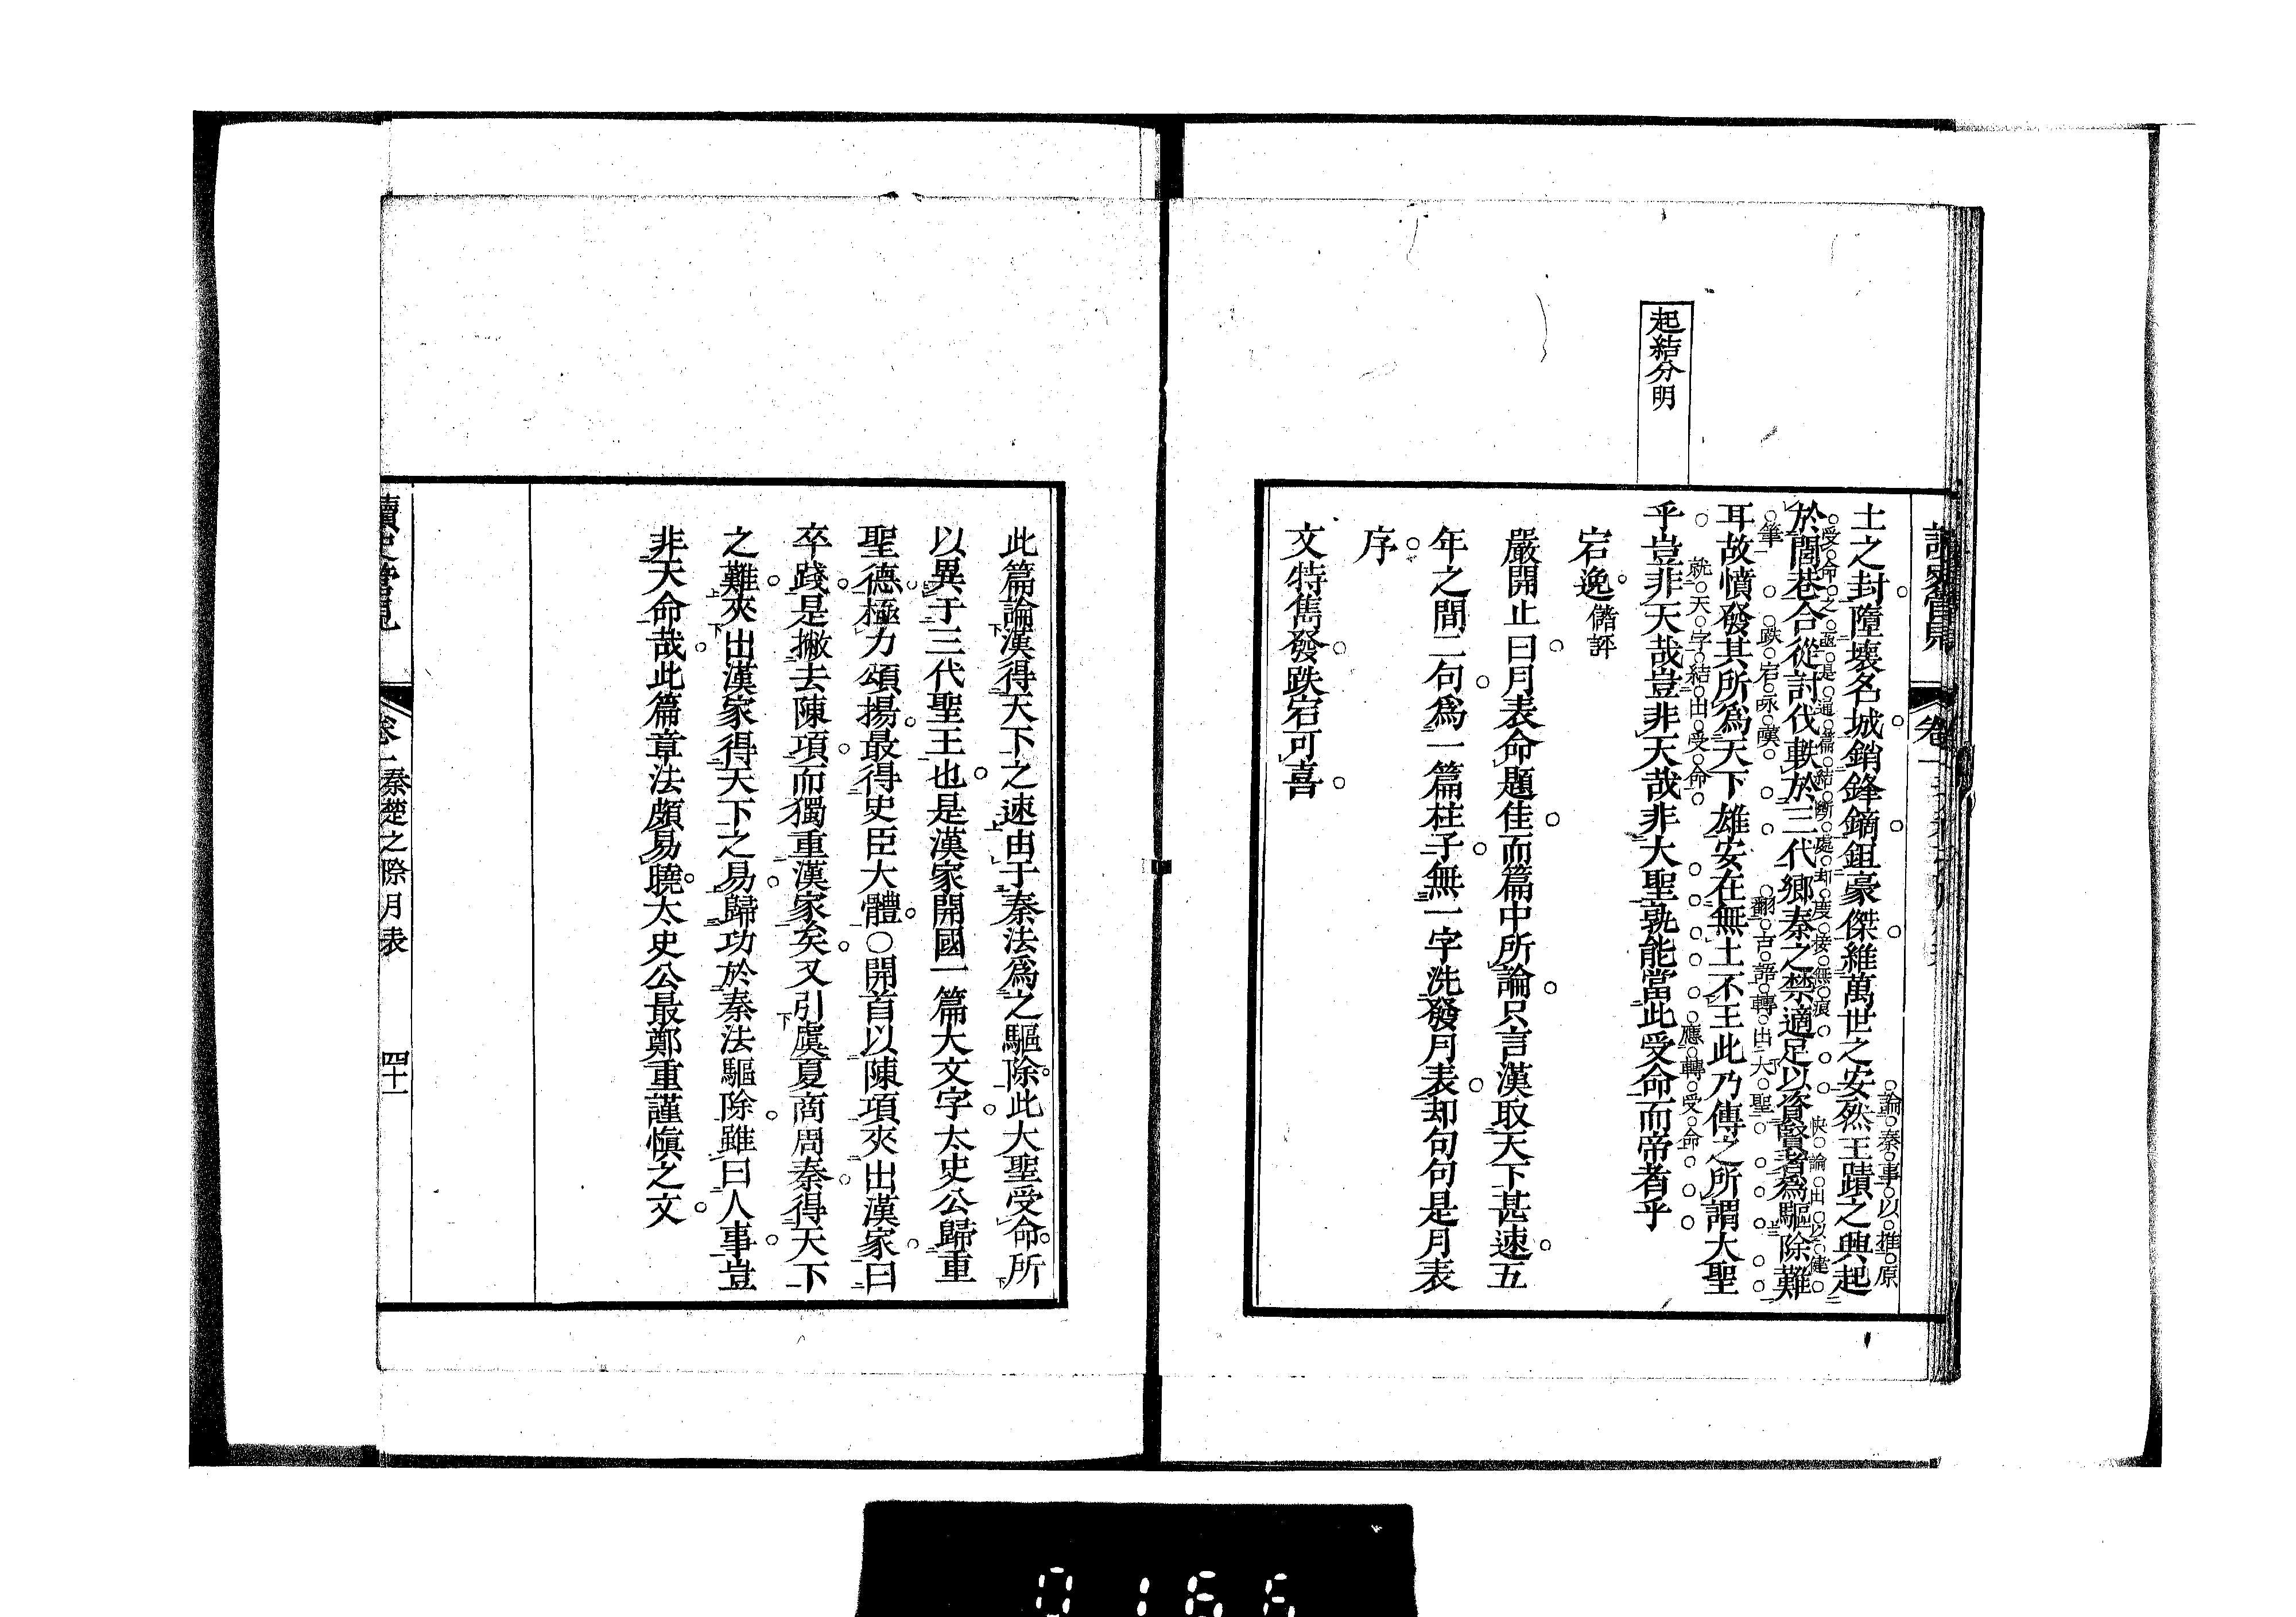 起結分明
土之封墮壞名城銷鋒鏑鉏豪傑維萬世之安然王蹟之興起
論秦事以推原
受命之亟是通篇結斷處却慶接無痕
快論出以健
於閭巷合從討伐軼於三代鄉秦之禁適足以資賢者爲驅除難
筆
跌宕咏嘆
翻古語轉出大聖
耳故憤發其所爲天下雄安在無土不王此乃傳之所謂大聖
就天字結出受命
應轉受命
乎豈非天哉豈非天哉非大聖孰能當此受命而帝者乎
宕逸 儲評
嚴開止曰月表命題佳而篇中所論只言漢取天下甚速五
年之間二句爲一篇柱子無一字洗發月表却句句是月表
序
文特雋發跌宕可喜
此篇論漢得天下之速由于秦法爲之驅除此大聖受命所
以異于三代聖王也是漢家開國一篇大文字太史公歸重
聖德極力頌揚最得史臣大體○開首以陳項夾出漢家曰
卒踐是撇去陳項而獨重漢家矣又引虞夏商周秦得天下
之難夾出漢家得天下之易歸功於秦法驅除雖曰人事豈
非天命哉此篇章法頗易曉太史公最鄭重謹愼之文
讀史管見
卷一 秦楚之際月表
四十一
0166